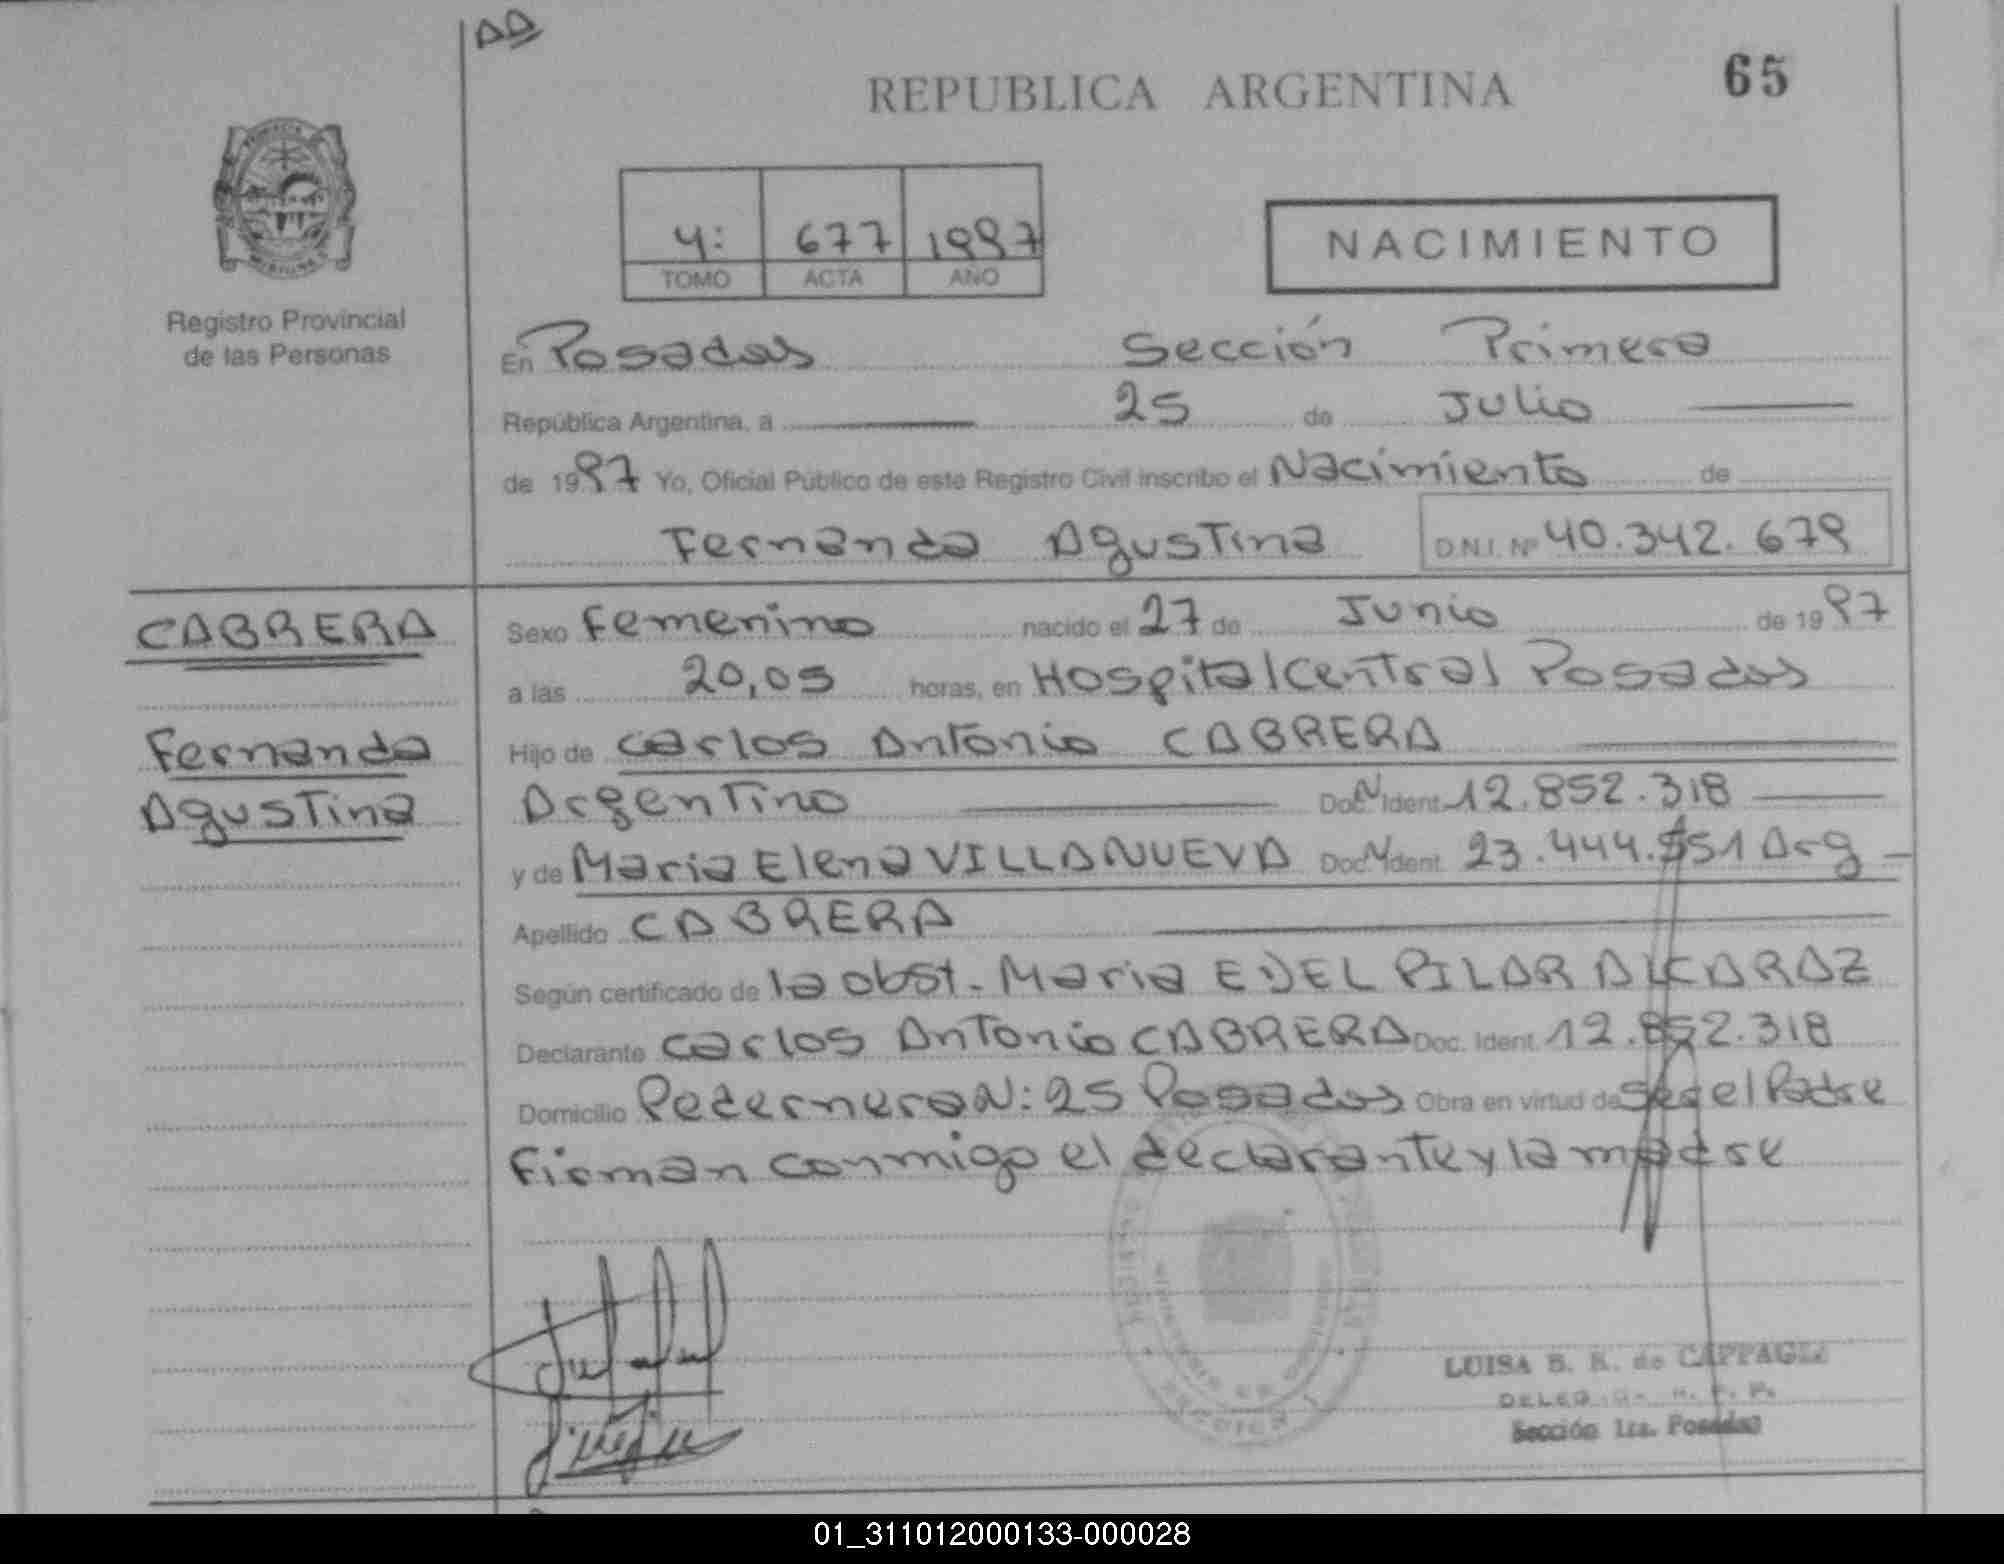 REPUBLICA ARGENTINA
65
4: 677 1997
TOMO ACTA AÑO
NACIMIENTO
Registro Provincial
de las Personas
En Posadas Sección Primera
República Argentina, a 25 de Julio
de 1997 Yo, Oficial Público de este Registro Civil inscribo el Nacimiento de
Fernanda Agustina D.N.I. Nº 40.342.679
CABRERA
Fernanda
Agustina
Sexo Femenino nacido el 27 de Junio de 1997
a las 20,05 horas, en Hospital Central Posadas
Hijo de Carlos Antonio CABRERA
Argentino Doc. N Ident. 12.852.318
y de Maria Elena VILLANUEVA Doc. N Ident. 23.444.551 Arg
Apellido CABRERA
Según certificado de la obst. Maria E. DEL PILAR ALCARAZ
Declarante Carlos Antonio CABRERA Doc. Ident. 12.852.318
Domicilio Pedernera N: 25 Posadas Obra en virtud de ser el Padre
Firman conmigo el declarante y la madre
LUISA B. de CAPPAGLI
Sección 1ra. Posadas
01_311012000133-000028